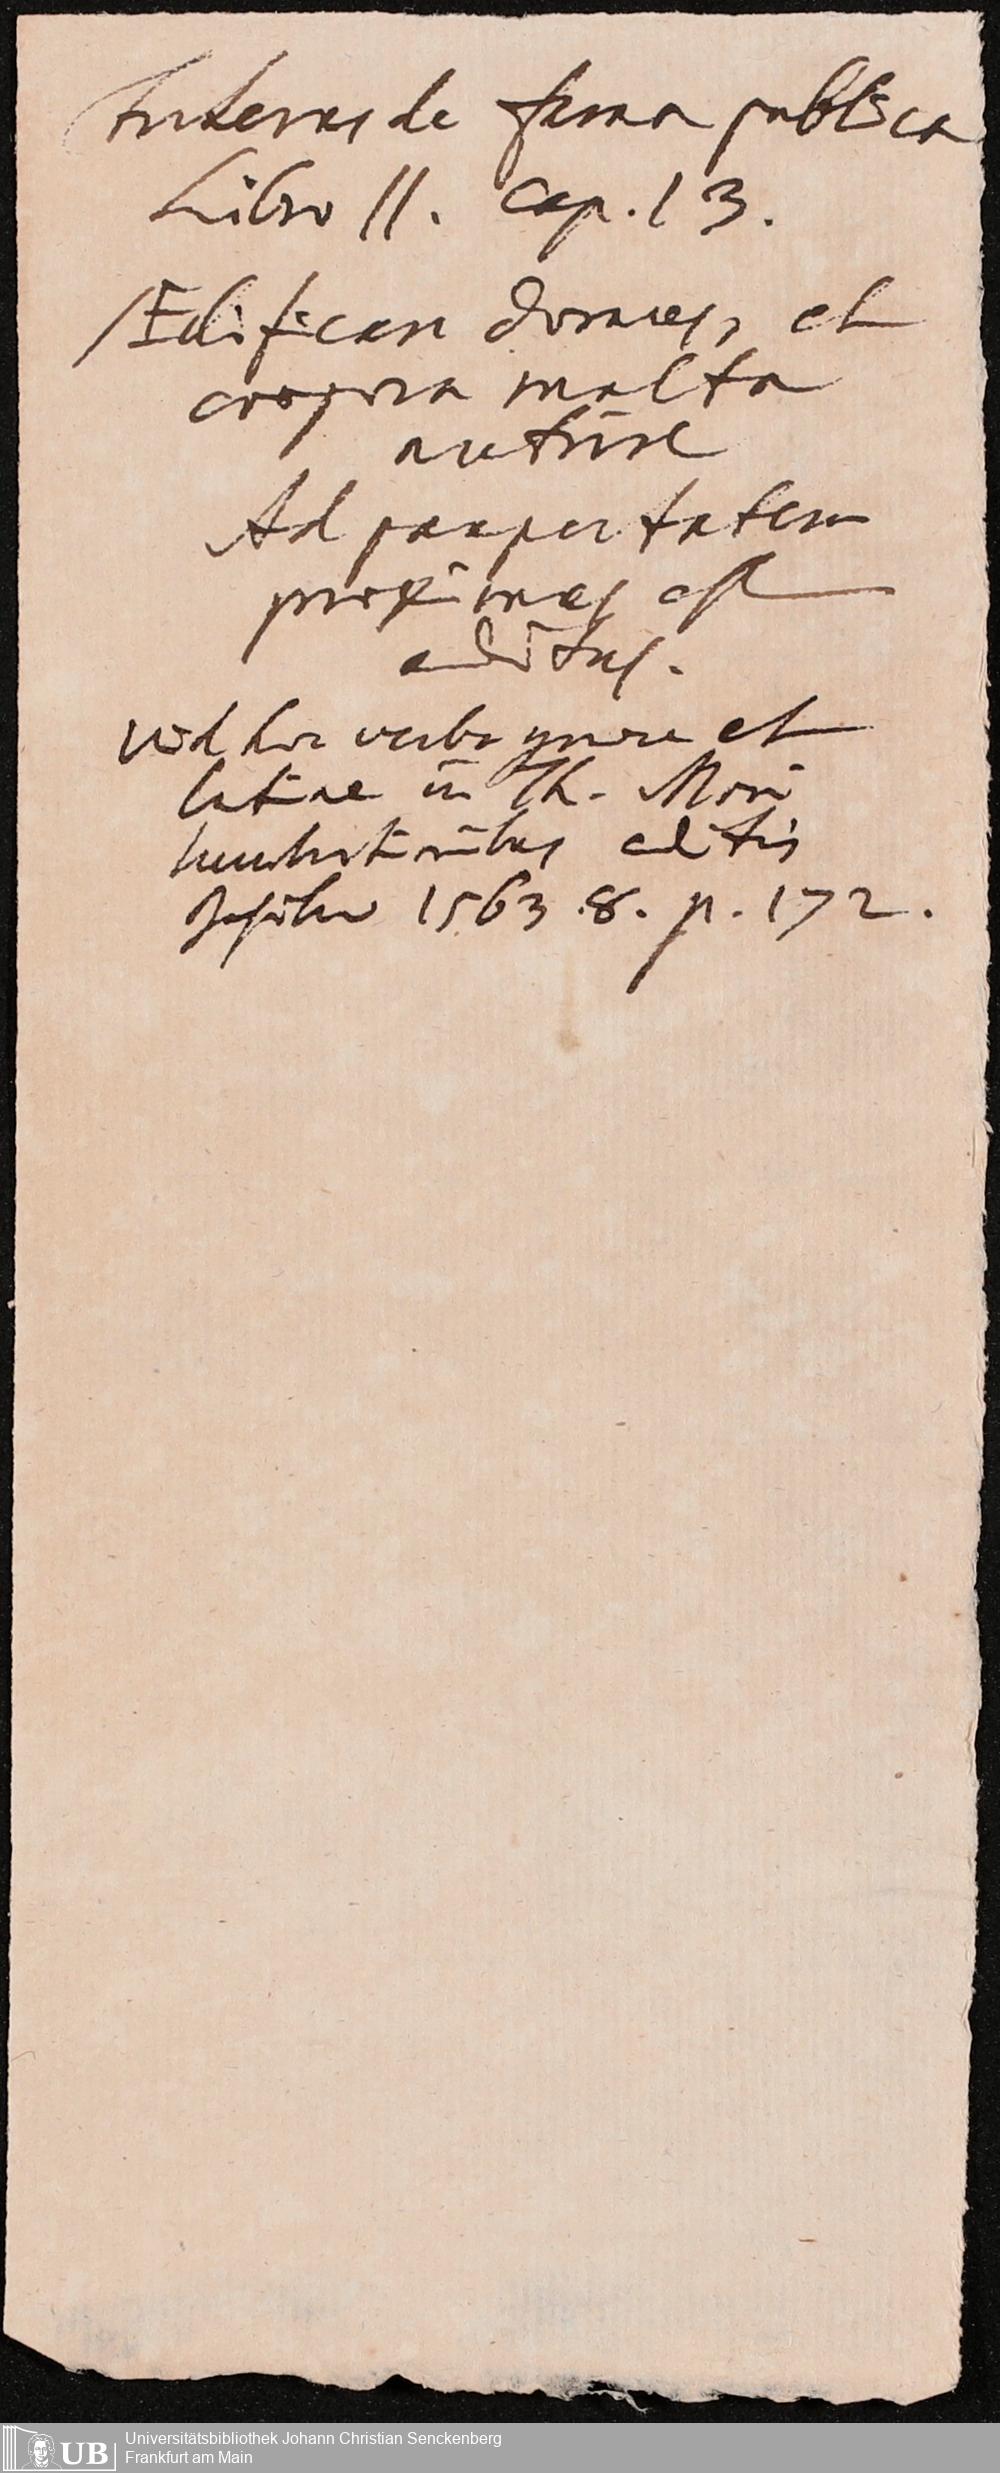 de fama publica
Libro II. Cap. 13.
Ædificare domus, et
corpora multa
nutrire
Ad paupertatem
proximus est
aditus.
vid hæc verba græce et
latine in Th. Mori
lucubrationibus editis
Basileae 1563 8. p. 172.
Universitätsbibliothek Johann Christian Senckenberg
Frankfurt am Main
UB